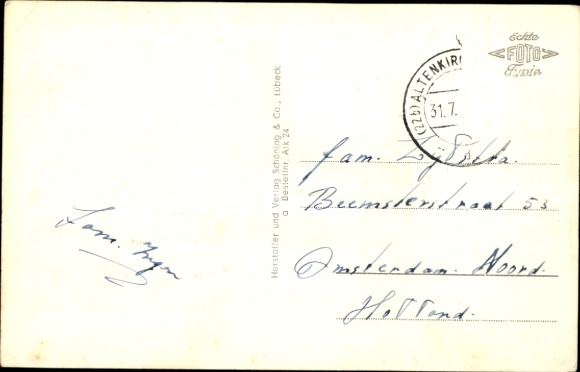 Echte
FOTO
(22b) ALTENKIR
31.7.
Hersteller und Verlag Schöning & Co., Lübeck
a Bestellnr. Alk 24
fam.
Beemsterstraat 53
Amsterdam. Noord.
Holland.
Fam.